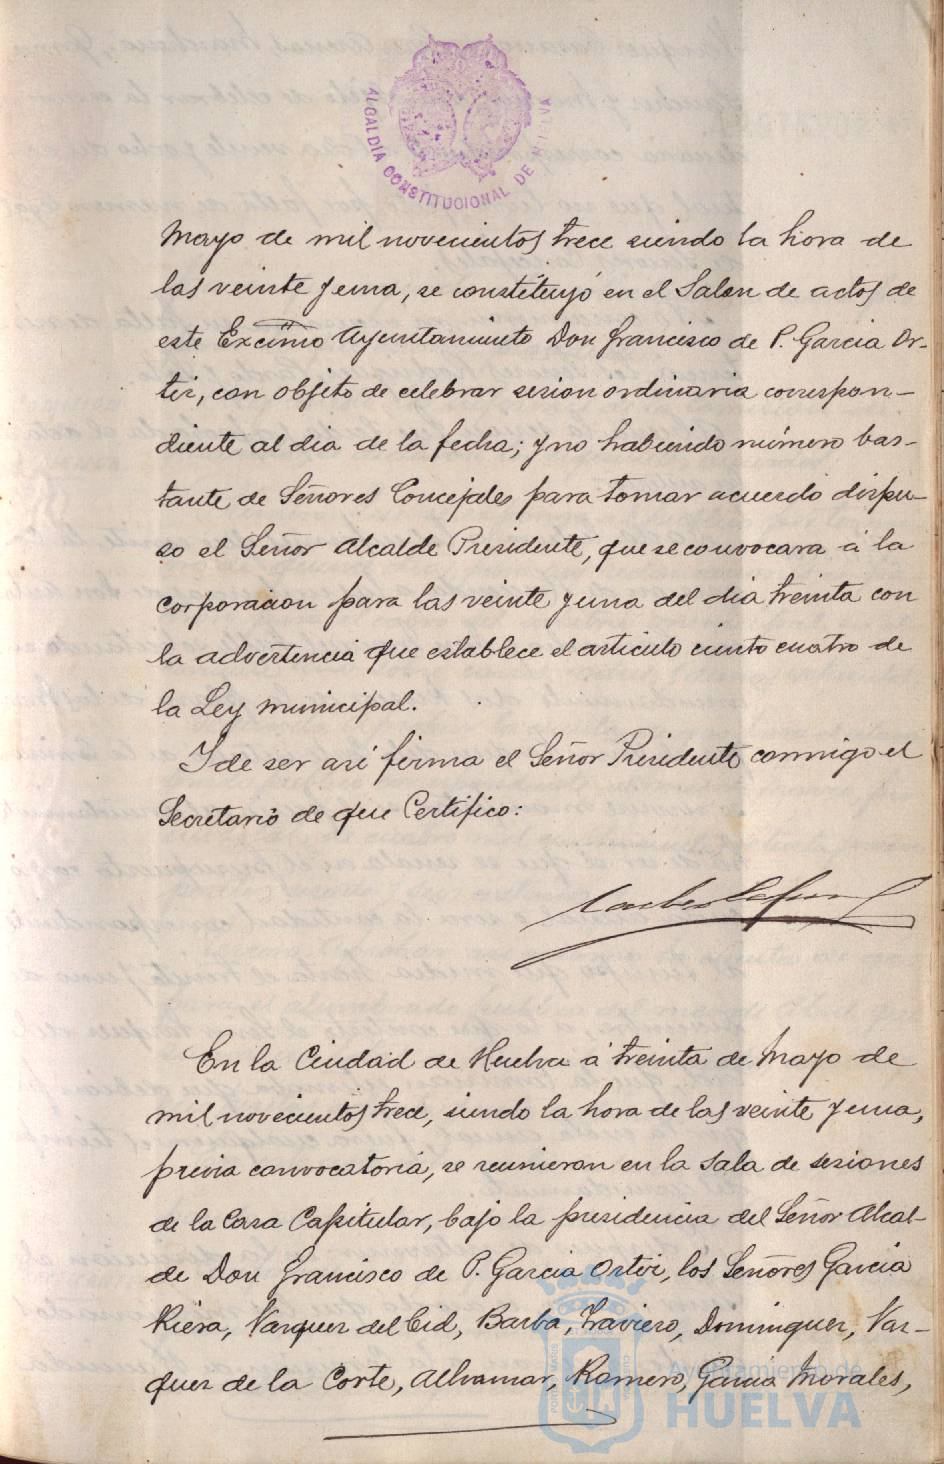 ALCALDIA CONSTITUCIONAL DE
Mayo de mil novecientos trece siendo la hora de
las veinte y una, se constituyó en el Salon de actos de
este Excmo Ayuntamiento Don Francisco de P. Garcia Or-
tiz, con objeto de celebrar sesion ordinaria correspon-
diente al dia de la fecha; y no habiendo número bas-
tante de Señores Concejales para tomar acuerdo dispu-
so el Señor Alcalde Presidente, que se convocara á la
corporacion para las veinte y una del dia treinta con
la advertencia que establece el articulo ciento cuatro de
la Ley municipal.
Y de ser asi firma el Señor Presidente conmigo el
Secretario de que Certifico:
En la Ciudad de Huelva á treinta de Mayo de
mil novecientos trece, siendo la hora de las veinte y una,
previa convocatoria, se reunieron en la sala de sesiones
de la Casa Capitular, bajo la presidencia del Señor Alcal-
de Don Francisco de P. Garcia Ortiz, los Señores Garcia
Riera, Vazquez del Cid, Barba, Traviero, Dominguez, Vaz-
quez de la Corte, Alhamar, Romero, Garcia Morales,
Ayuntamiento de
HUELVA